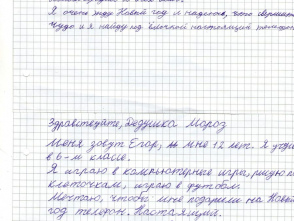 Я очень жду Новый год и надеюсь, что
Чудо и я найду под ёлочкой настоящий
Здравствуйте, Дедушка Мороз
Меня зовут Егор, мне 12 лет. Я
в 6-м классе.
Я играю в компьютерные игры, рисую по
клеточкам, играю в футбол.
Мечтаю, чтобы мне подарили на Новый
год телефон. Настоящий.